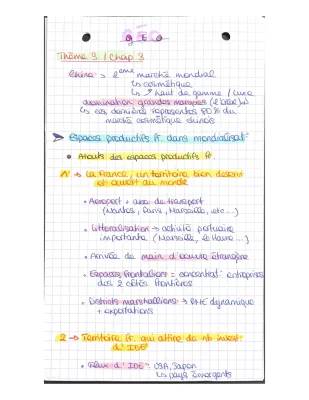 GEO
Thème 3 / Chap 3
Chine > 2ème marché mondial
↳ cosmétique
↳ ↗ haut de gamme / luxe
domination grandes marques (L'Oréal)
↳ ces dernières représentes 80% du
marché cosmétique chinois
➤ Espaces productifs fr. dans mondialisat°
• Atouts des espaces productifs fr.
1 → La France, un territoire bien desservi
et ouvert au monde
• Aéroport + axe de transport
(Nantes, Paris, Marseille, etc...)
• Littoralisation → activité portuaire
importante (Marseille, le Havre...)
• Arrivée de main d'œuvre étrangère
• Espaces frontaliers = concentrat° entreprises
des 2 côtés frontières
• Districts marshalliens → PME dynamique
+ exportations
2 → Territoire fr. qui attire de nb invest°
d'IDE
• Flux d'IDE : USA, Japon
↳ pays émergents